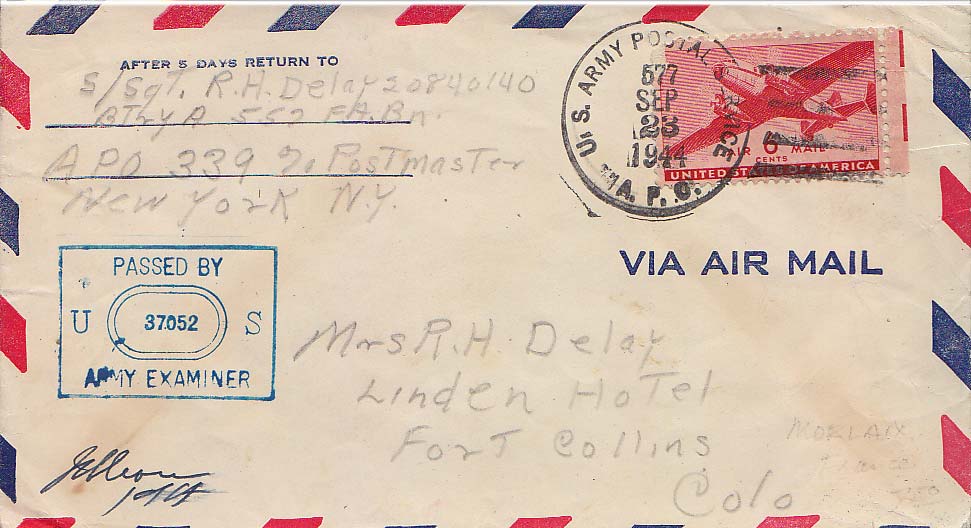 AFTER 5 DAYS RETURN TO
S/Sgt. R.H. Delay 20840140
Btry A 552 F.A. Bn.
APO 339 % Postmaster
New York N.Y.
U. S. ARMY POSTAL SERVICE
577
SEP
23
1944
A. P. O.
AIR 6 MAIL
CENTS
UNITED STATES OF AMERICA
VIA AIR MAIL
PASSED BY
U 37052 S
ARMY EXAMINER
Mrs R.H. Delay
Linden Hotel
Fort Collins
Colo
MORLAIX
France